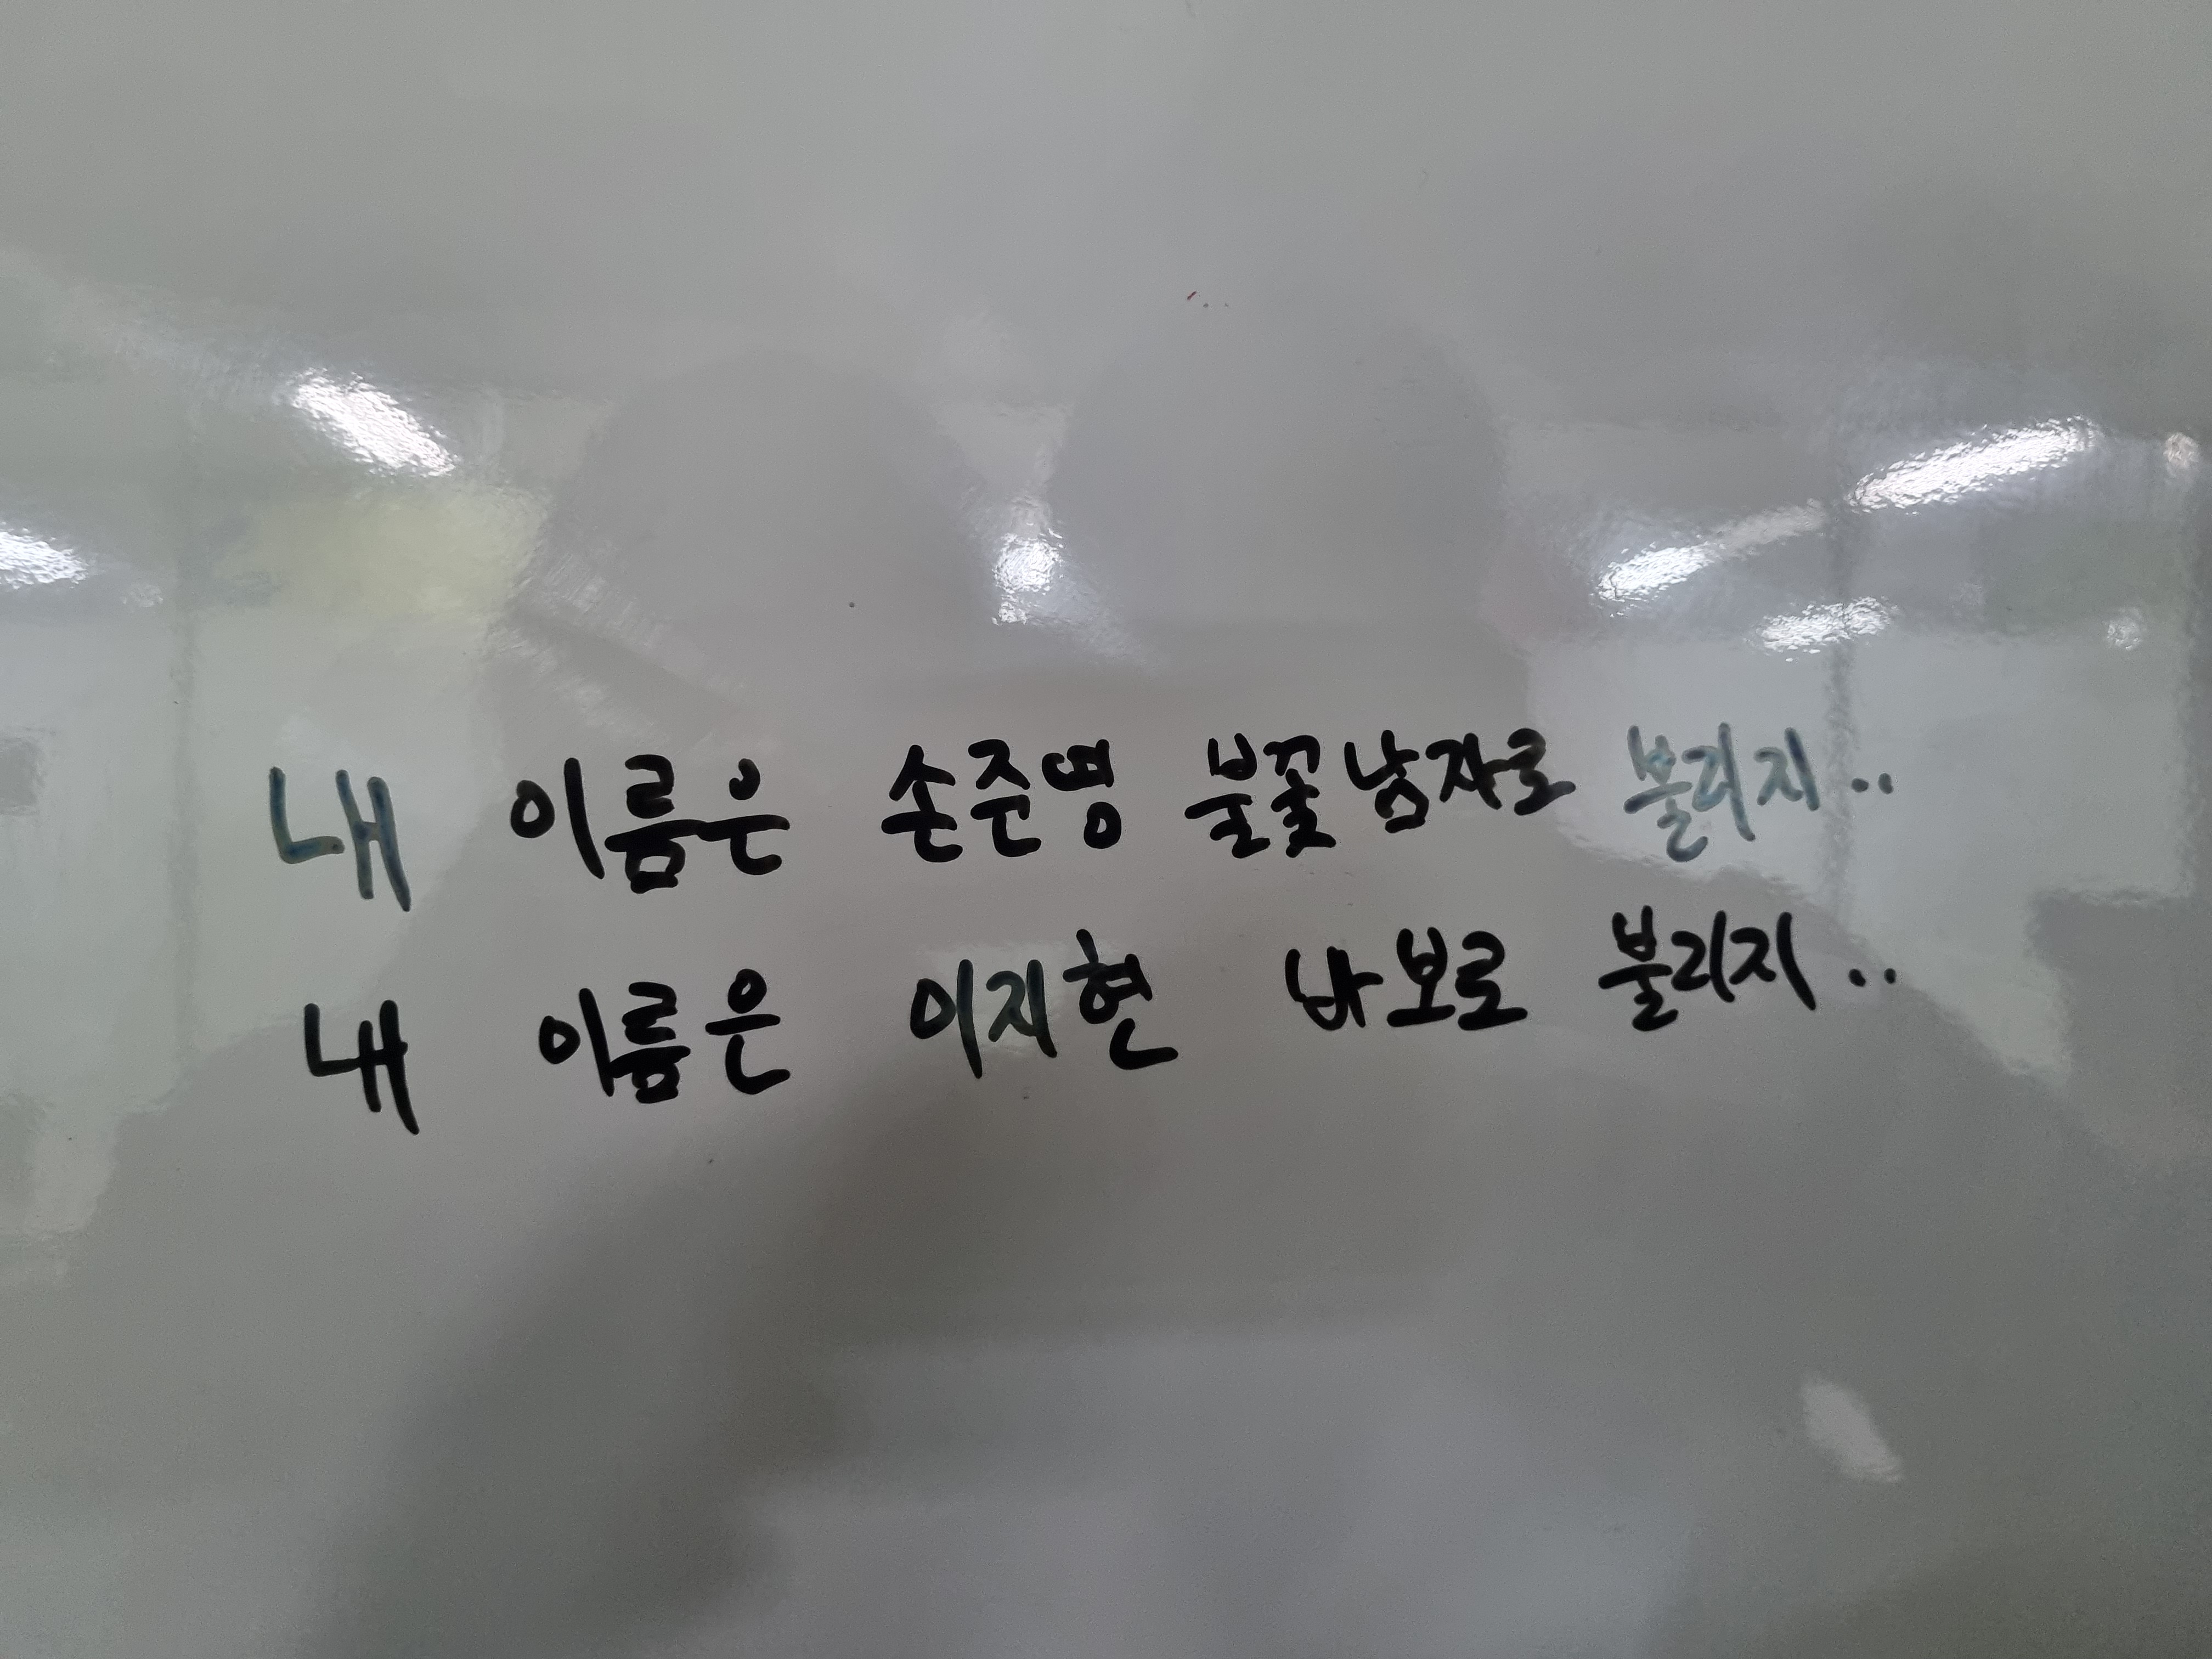 내 이름은 손준영 불꽃남자로 불리지..
내 이름은 이지현 바보로 불리지..